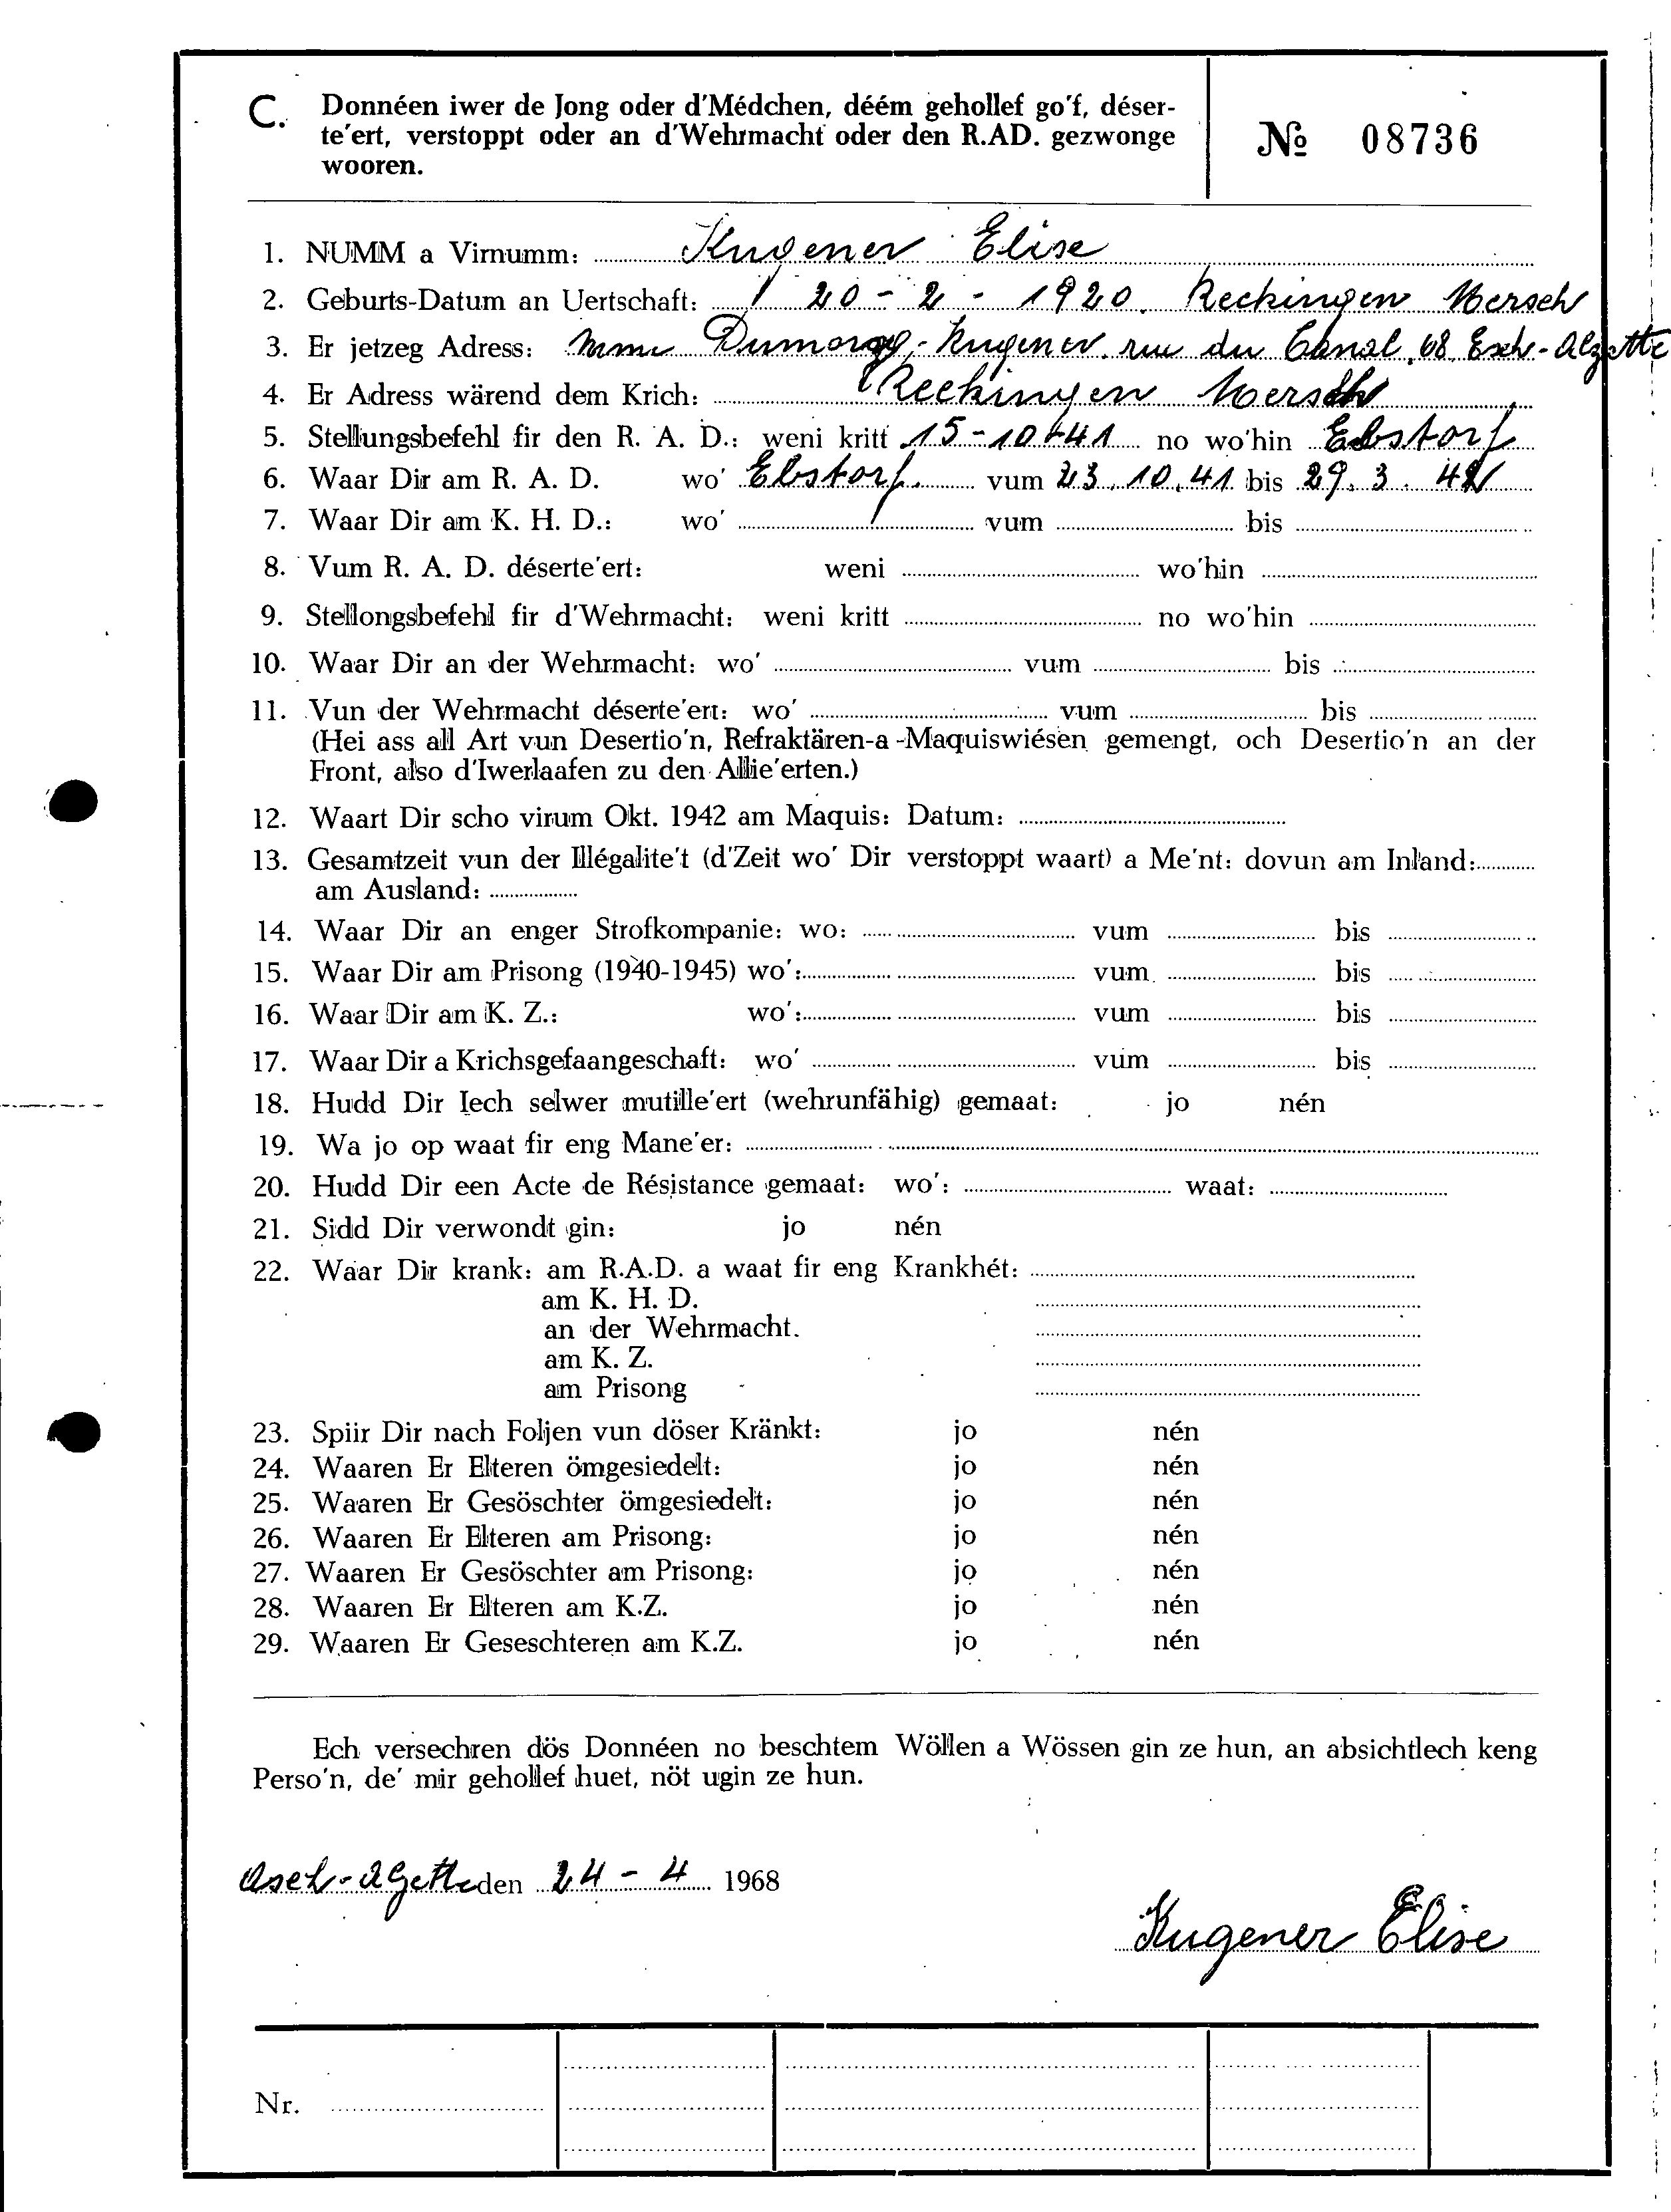 C. Donnéen iwer de Jong oder d'Médchen, déém gehollef go'f, déser-
te'ert, verstoppt oder an d'Wehrmacht oder den R.AD. gezwonge
wooren.
№ 08736
1. NUMM a Virnumm: Kugener Elise
2. Geburts-Datum an Uertschaft: 20 - 2 - 1920. Reckingen Mersch
3. Er jetzeg Adress: Mme - Kugener. rue du Canal, 68 Esch-Alzette
4. Er Adress wärend dem Krich: Reckingen Mersch
5. Stellungsbefehl fir den R. A. D.: weni kritt 15-10-41 no wo'hin Ebstorf
6. Waar Dir am R. A. D. wo' Ebstorf. vum 23.10.41 bis 29.3.42
7. Waar Dir am K. H. D.: wo' vum bis
8. Vum R. A. D. déserte'ert: weni wo'hin
9. Stellongsbefehl fir d'Wehrmacht: weni kritt no wo'hin
10. Waar Dir an der Wehrmacht: wo' vum bis
11. Vun der Wehrmacht déserte'ert: wo' vum bis
(Hei ass all Art vun Desertio'n, Refraktären-a-Maquiswiésen gemengt, och Desertio'n an der
Front, also d'Iwerlaafen zu den Allie'erten.)
12. Waart Dir scho virum Okt. 1942 am Maquis: Datum:
13. Gesamtzeit vun der Illégalite't (d'Zeit wo' Dir verstoppt waart) a Me'nt: dovun am Inland:
am Ausland:
14. Waar Dir an enger Strofkompanie: wo: vum bis
15. Waar Dir am Prisong (1940-1945) wo': vum bis
16. Waar Dir am K. Z.: wo': vum bis
17. Waar Dir a Krichsgefaangeschaft: wo' vum bis
18. Hudd Dir Iech selwer mutille'ert (wehrunfähig) gemaat: jo nén
19. Wa jo op waat fir eng Mane'er:
20. Hudd Dir een Acte de Résistance gemaat: wo': waat:
21. Sidd Dir verwondt gin: jo nén
22. Waar Dir krank: am R.A.D. a waat fir eng Krankhét:
am K. H. D.
an der Wehrmacht.
am K. Z.
am Prisong
23. Spiir Dir nach Foljen vun döser Kränkt: jo nén
24. Waaren Er Elteren ömgesiedelt: jo nén
25. Waaren Er Gesöschter ömgesiedelt: jo nén
26. Waaren Er Elteren am Prisong: jo nén
27. Waaren Er Gesöschter am Prisong: jo nén
28. Waaren Er Elteren am K.Z. jo nén
29. Waaren Er Geseschteren am K.Z. jo nén
Ech versechren dös Donnéen no beschtem Wöllen a Wössen gin ze hun, an absichtlech keng
Perso'n, de' mir gehollef huet, nöt ugin ze hun.
den 24 - 4 1968
Kugener Elise
Nr.